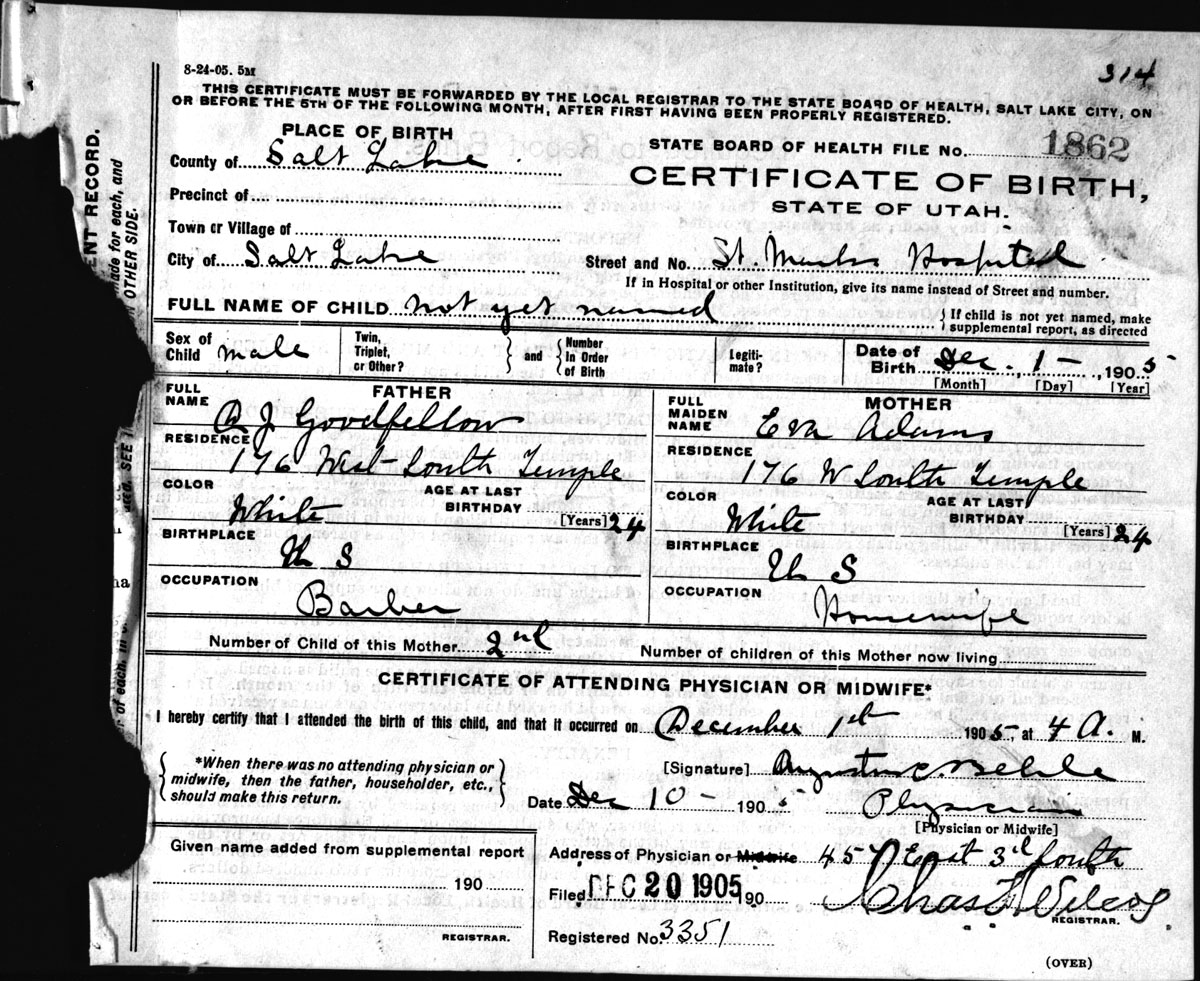 8-24-05. 5M
314
THIS CERTIFICATE MUST BE FORWARDED BY THE LOCAL REGISTRAR TO THE STATE BOARD OF HEALTH, SALT LAKE CITY, ON
OR BEFORE THE 5TH OF THE FOLLOWING MONTH, AFTER FIRST HAVING BEEN PROPERLY REGISTERED.
PLACE OF BIRTH
STATE BOARD OF HEALTH FILE No. 1862
County of Salt Lake
CERTIFICATE OF BIRTH,
STATE OF UTAH.
Precinct of
Town or Village of
City of Salt Lake Street and No. St. Marks Hospital
If in Hospital or other Institution, give its name instead of Street and number.
FULL NAME OF CHILD not yet named { If child is not yet named, make
supplemental report, as directed
Sex of
Child male
Twin,
Triplet,
or Other? } and { Number
in Order
of Birth
Legiti-
mate?
Date of
Birth Dec. 1 - , 1905
[Month] [Day] [Year]
FATHER
FULL
NAME A J Goodfellow
RESIDENCE
176 West South Temple
COLOR
White
AGE AT LAST
BIRTHDAY [Years] 24
BIRTHPLACE
U S
OCCUPATION
Barber
MOTHER
FULL
MAIDEN
NAME Eva Adams
RESIDENCE
176 W South Temple
COLOR
White
AGE AT LAST
BIRTHDAY [Years] 24
BIRTHPLACE
U S
OCCUPATION
Housewife
Number of Child of this Mother 2nd Number of children of this Mother now living
CERTIFICATE OF ATTENDING PHYSICIAN OR MIDWIFE*
I hereby certify that I attended the birth of this child, and that it occurred on December 1st 1905, at 4 A. M.
{ *When there was no attending physician or
midwife, then the father, householder, etc.,
should make this return. }
[Signature] Augustus C. Behle
Date Dec 10 - 1905 Physician
[Physician or Midwife]
Given name added from supplemental report
190
REGISTRAR.
Address of Physician or Midwife 457 East 3rd South
Filed DEC 20 1905 190 Chas F Wilcox
REGISTRAR.
Registered No. 3351
(OVER)
ENT RECORD.
made for each, and
OTHER SIDE.